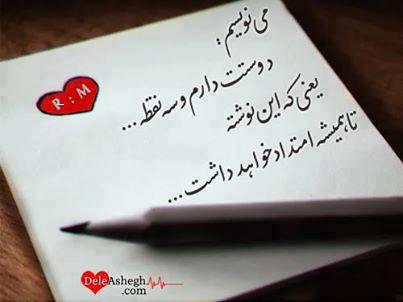 می نویسم :
دوستت دارم و سه نقطه ...
یعنی که این نوشته
تا همیشه امتداد خواهد داشت ...
R : M
DeleAshegh
.com